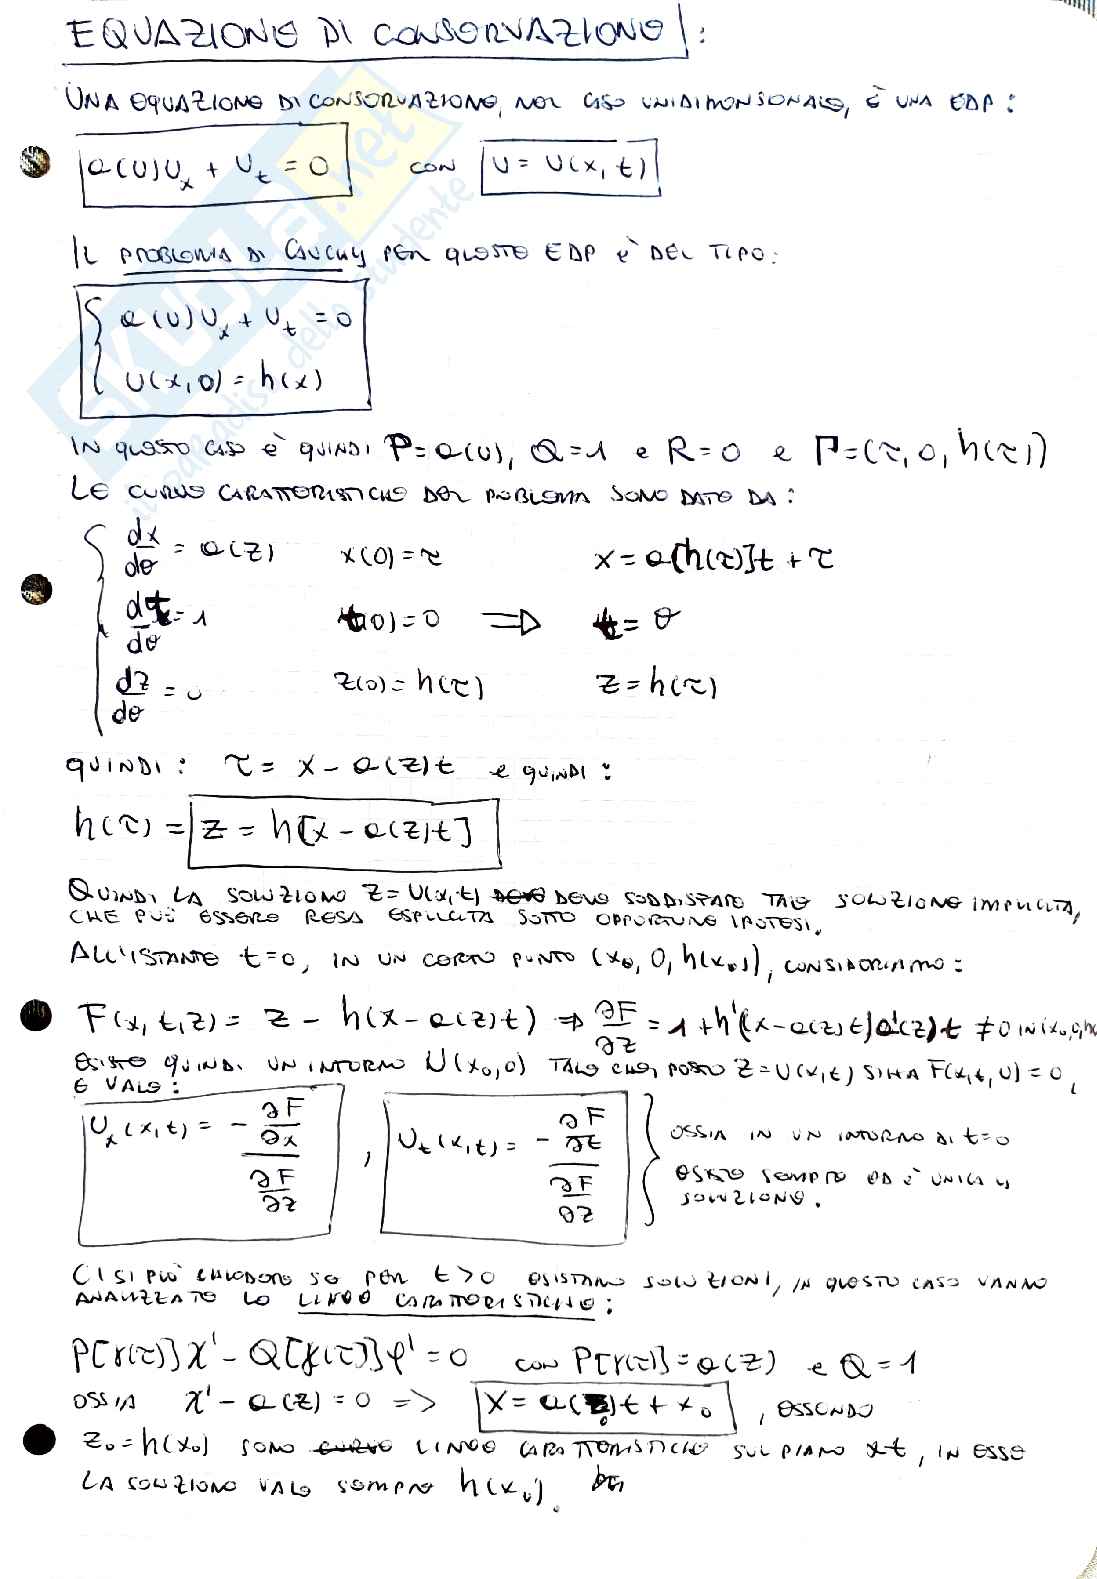 EQUAZIONE DI CONSERVAZIONE:
UNA EQUAZIONE DI CONSERVAZIONE, NEL CASO UNIDIMENSIONALE, È UNA EDP:
a(U)Ux + Ut = 0 CON U = U(x, t)
IL PROBLEMA DI CAUCHY PER QUESTE EDP È DEL TIPO:
a(U)Ux + Ut = 0
U(x, 0) = h(x)
IN QUESTO CASO È QUINDI P=a(U), Q=1 e R=0 e Γ=(τ, 0, h(τ))
LE CURVE CARATTERISTICHE DEL PROBLEMA SONO DATE DA:
dx/dθ = a(z) x(0)=τ x=a[h(τ)]t + τ
dt/dθ = 1 t(0)=0 ⇒ t=θ
dz/dθ = 0 z(0)=h(τ) z=h(τ)
QUINDI: τ= x-a(z)t e QUINDI:
h(τ) = z = h[x-a(z)t]
QUINDI LA SOLUZIONE z=U(x,t) DEVE SODDISFARE TALE SOLUZIONE IMPLICITA,
CHE PUÒ ESSERE RESA ESPLICITA SOTTO OPPORTUNE IPOTESI.
ALL'ISTANTE t=0, IN UN CERTO PUNTO (x0, 0, h(x0)), CONSIDERIAMO:
F(x, t, z) = z - h(x-a(z)t) ⇒ ∂F/∂z = 1+h'(x-a(z)t)a'(z)t ≠0 IN (x0,0,h
ESISTE QUINDI UN INTORNO U(x0,0) TALE CHE, POSTO z=U(x,t) SI HA F(x,t,U)=0,
E VALE:
Ux(x,t) = - ∂F/∂x / ∂F/∂z , Ut(x,t) = - ∂F/∂t / ∂F/∂z
OSSIA IN UN INTORNO DI t=0
ESISTE SEMPRE ED È UNICA LA
SOLUZIONE.
CI SI PUÒ CHIEDERE SE PER t>0 ESISTANO SOLUZIONI, IN QUESTO CASO VANNO
ANALIZZATE LE LINEE CARATTERISTICHE:
P[γ(τ)]χ' - Q[γ(τ)]φ' = 0 CON P[γ(τ)]=a(z) e Q=1
OSSIA χ'-a(z)=0 => x=a(z0)t+x0, ESSENDO
z0=h(x0) SONO LINEE CARATTERISTICHE SUL PIANO xt, IN ESSE
LA SOLUZIONE VALE SEMPRE h(x0).